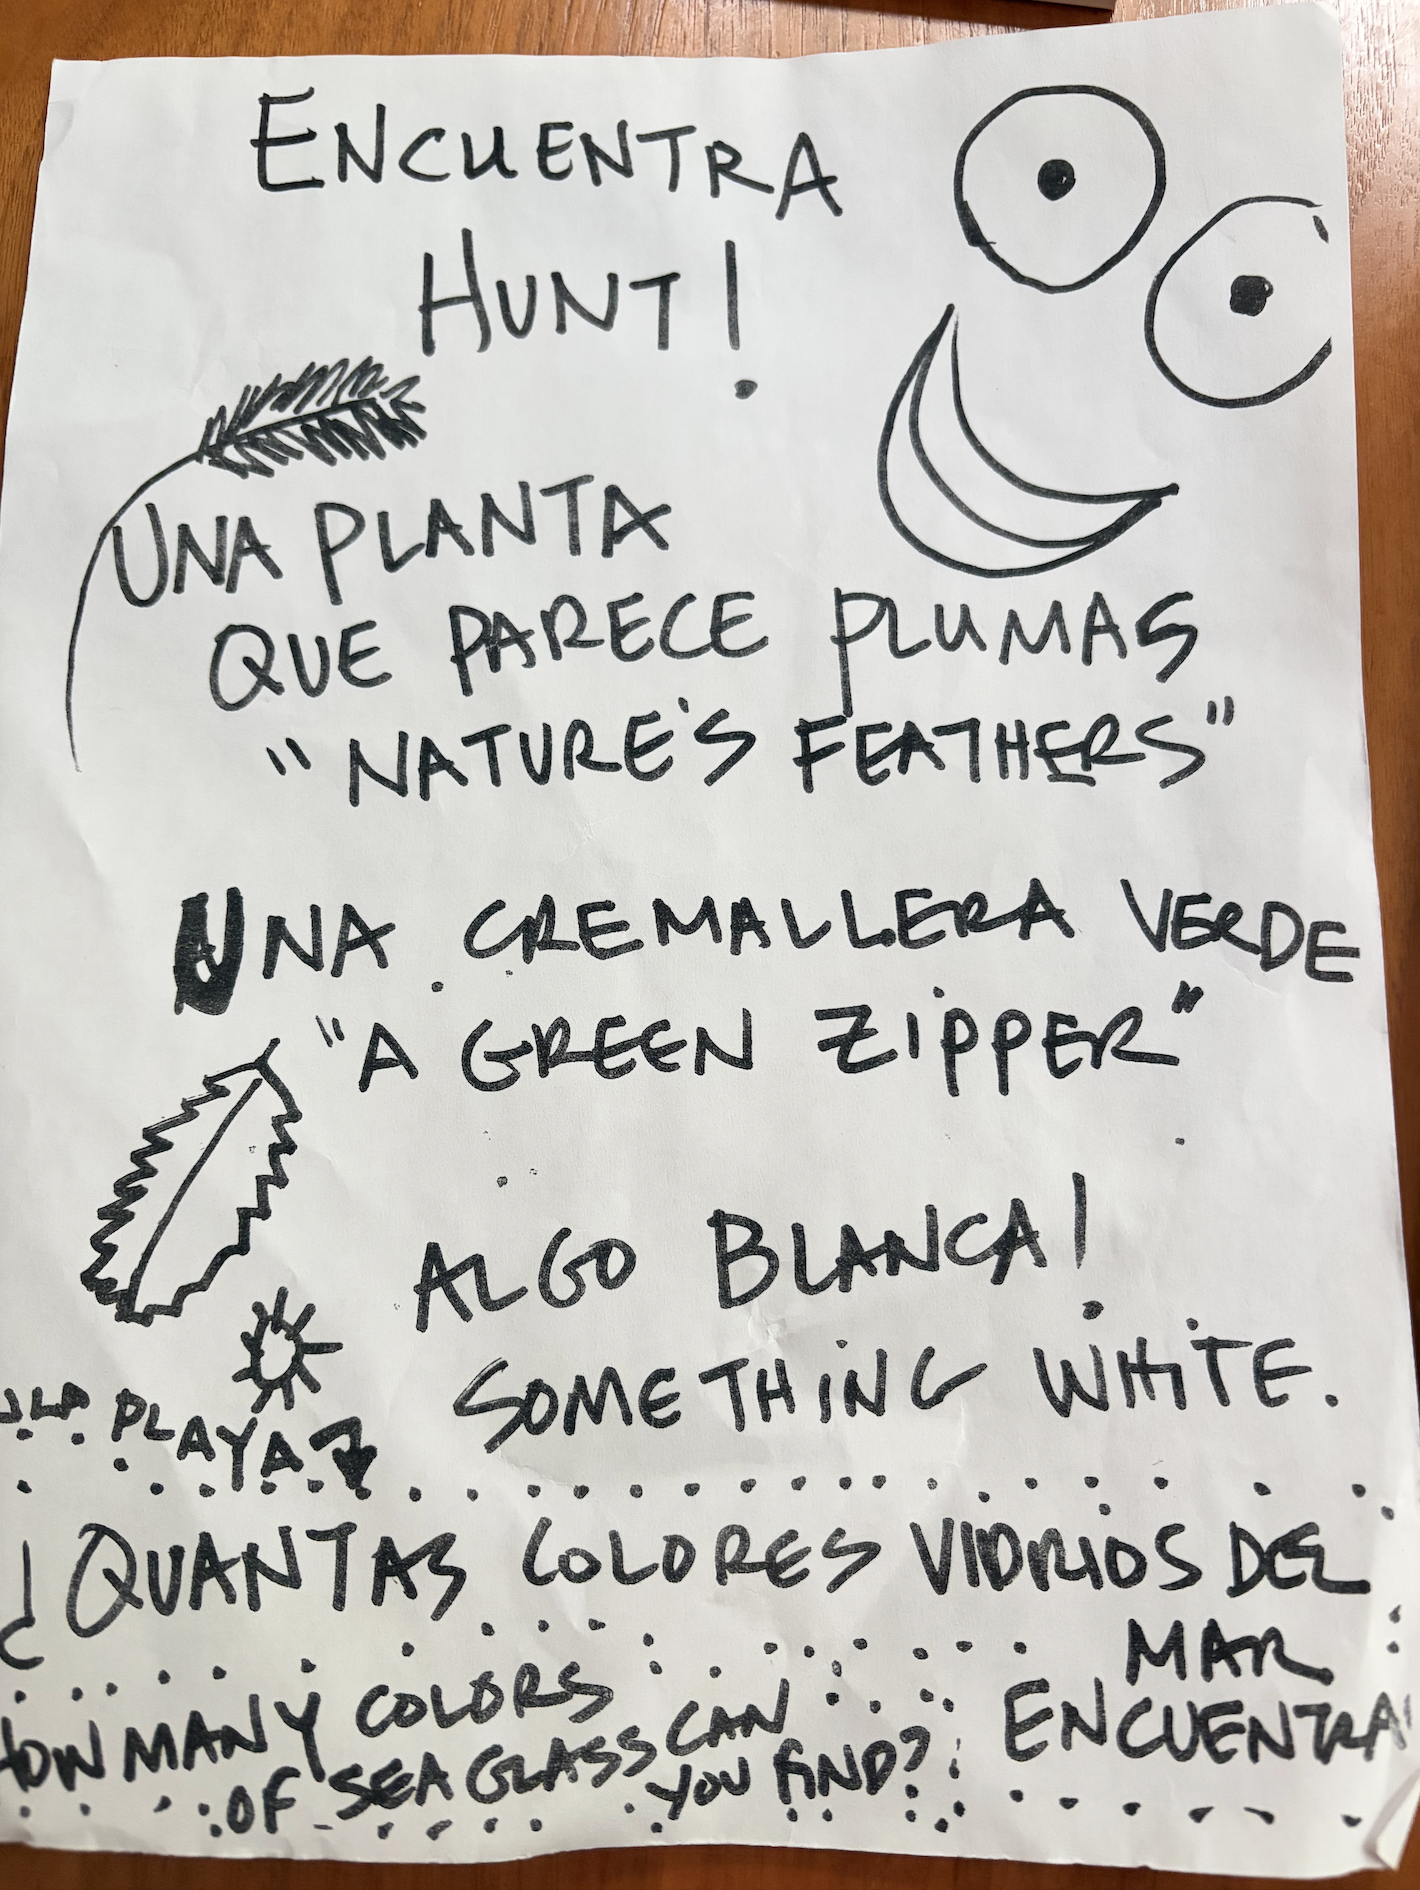 ENCUENTRA
HUNT!
UNA PLANTA
QUE PARECE PLUMAS
"NATURE'S FEATHERS"
UNA CREMALLERA VERDE
"A GREEN ZiPPER"
ALGO BLANCA!
SOMETHiNG WHiTE.
PLAYA
¿QUANTAS COLORES VIDRIOS DEL
MAR
ENCUENTRA
HOW MANY COLORS
OF SEA GLASS CAN
YOU FiND?